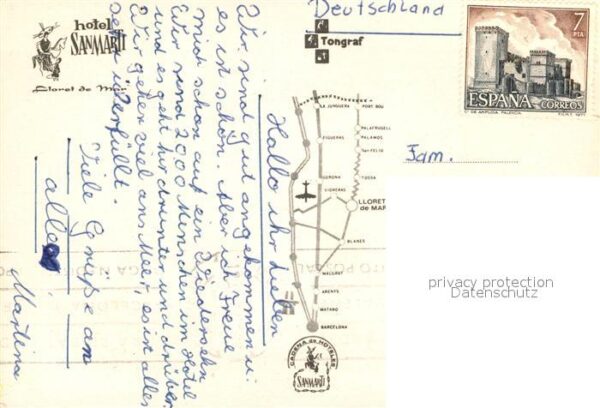 hotel
SANMARTI
Lloret de Mar
Hallo ihr Lieben
Wir sind gut angekommen u.
es ist schön. Aber ich freue
mich schon auf ein Wiedersehn
Wir sind 2000 Menschen im Hotel
und es geht hier drunter und drüber.
Wir gehen viel ans Meer, es ist alles
sehr überfüllt.
Viele Grüße an
alle
Martina
Deutschland
Tongraf
Fam.
7
PTA
ESPAÑA
CORREOS
LA JUNQUERA
PORT BOU
FIGUERAS
PALAFRUGELL
PALAMOS
San FELIU
GERONA
TOSSA
VIDRERAS
LLORET
de MAR
BLANES
MALGRAT
ARENYS
MATARO
BARCELONA
CADENA de HOTELES
SANMARTI
privacy protection
Datenschutz